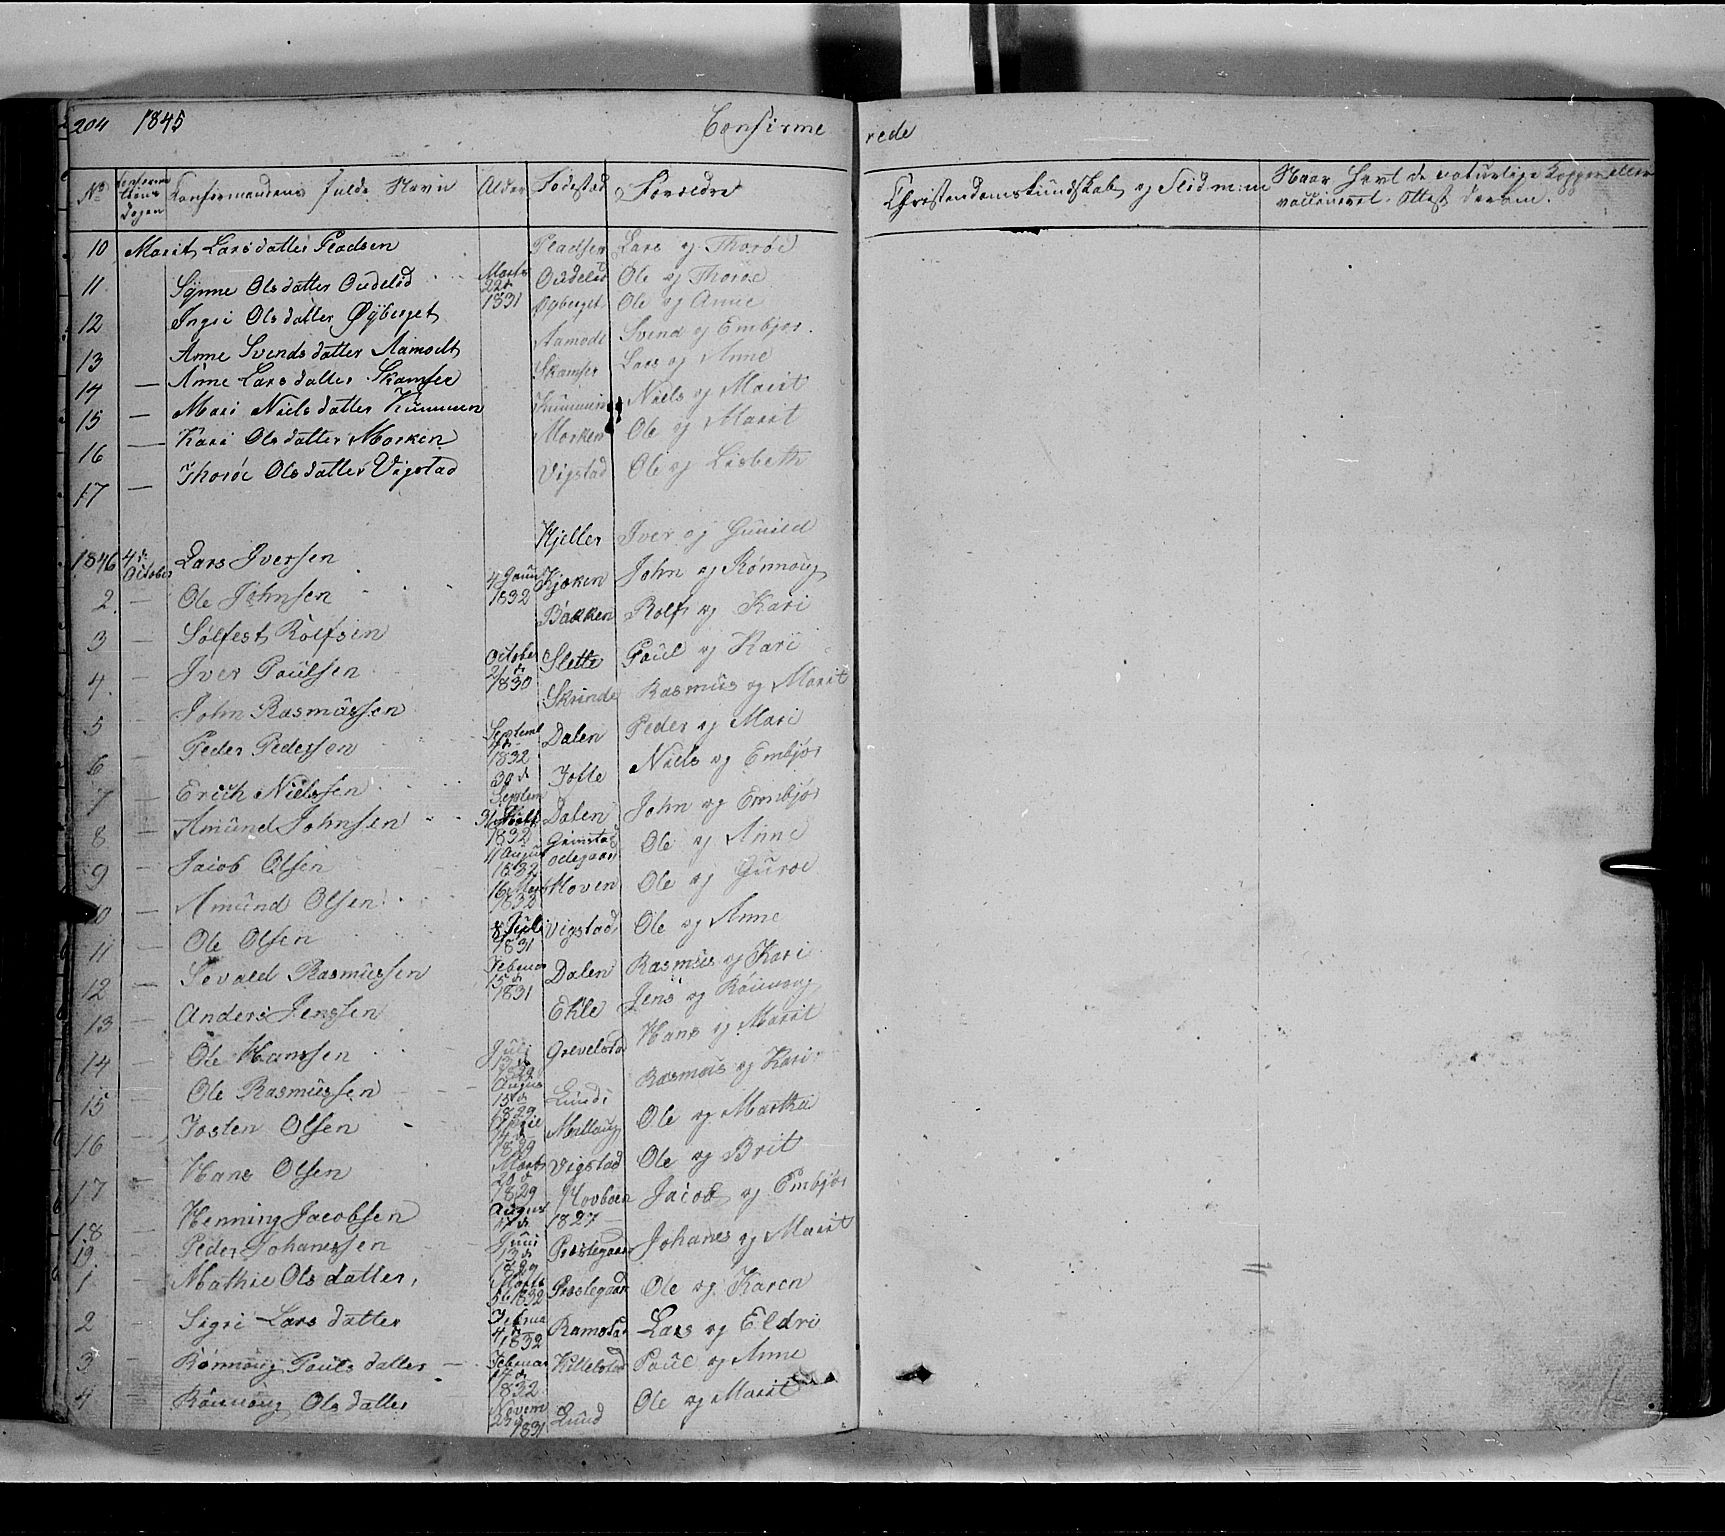 204 1845 Confirme rede
No Confirma tions Dagen Konfirmandens fulde Navn Alder Fødestæd Foreldre Christendomskundskab og Flid m:m Naar havt de naturlige Kopper eller vaccineret. Attest derom.
10 Marit Larsdatter Pladsen Pladsen Lars og Thorøe
11 Synne Olsdatter Oudelid Marts 22d 1831 Oudelid Ole og Thorøe
12 Ingri Olsdatter Øyberget Øyberget Ole og Anne
13 Anne Svendsdatter Aamodt Aamode Svend og Embjør.
14 — Anne Larsdatter Skamser Skamser Lars og Anne
15 — Mari Nielsdatter Kummen Kummen Niels og Marit
16 — Kari Olsdatter Morken Morken Ole og Marit
17 — Thorøe Olsdatter Vigstad Vigstad Ole og Lisbeth
1846 4de October Lars Iversen Kjeller Iver og Gunild
2. — Ole Johnsen 4 1832 Kjøken John og Rønnoug
3 — Solfest Rolfsen Bakken Rolf og Kari
4. — Iver Paulsen October 21d 1830 Slette Paul og Kari
5 — John Rasmussen Skrinde Rasmus og Marit
6 — Peder Pedersen Septemb 4d 1832 Dalen Peder og Mari
7 — Erich Nielssen 30d Septem Jotte Niels og Embjør
8 — Amund Johnsen 31 1832 Dalen John og Embjør
9 — Jacob Olsen 11 Augus 1832 Grimstad odegaard Ole og Anne
10 — Amund Olsen 16 1832 Moven Ole og Guroe
11 — Ole Olsen 8 Juli 1831 Vigstad Ole og Anne
12 — Sevald Rasmussen Februar 15d 1831 Dalen Rasmus og Kari
13 — Anders Jenssen Ekle Jens og Rønnoug
14 — Ole Hanssen Juli Grevelstad Hans og Marit
15 — Ole Rasmussen Augus 15d 1829 Lunde Rasmus og Kari
16 — Josten Olsen April 4d 1829 Ole og Martha
17 — Hans Olsen Marts 20d 1829 Vigstad Ole og Brit
18 — Henning Jacobsen Augus 17d 1827 — Hovboen Jacob og Embjør
19 — Peder Johanessen Juni 13d 1829 Prestegaar Johanes og Marit
1 — Mathie Olsdatter, Marts 1832 Prestegaar Ole og Karen
2 — Sigri Larsdatter Februa 4d 1832 Ramstad Lars og Eldri
3 — Rønnoug Paulsdatter — Februar 17d 1832 Killelstad Paul og Anne
4 — Rønnoug Olsdatter Novem 23d 1831 Lund Ole og Marit